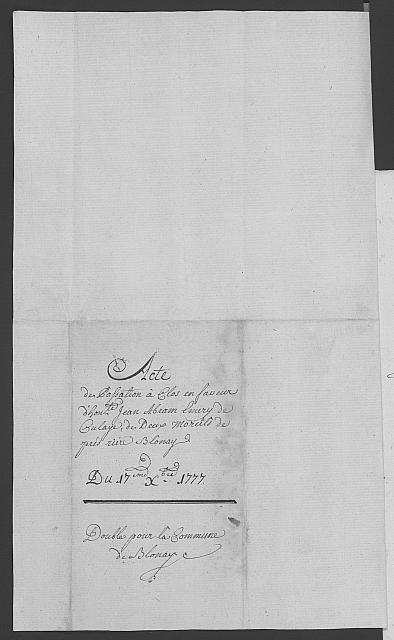 Acte
de Passation à Clos en faveur
d'hon.te Jean Abram Emery de
Culaye, de Deux Morcels de
prés rière Blonay
Du 17.me Xbre 1777.
Double pour la Commune
de Blonay